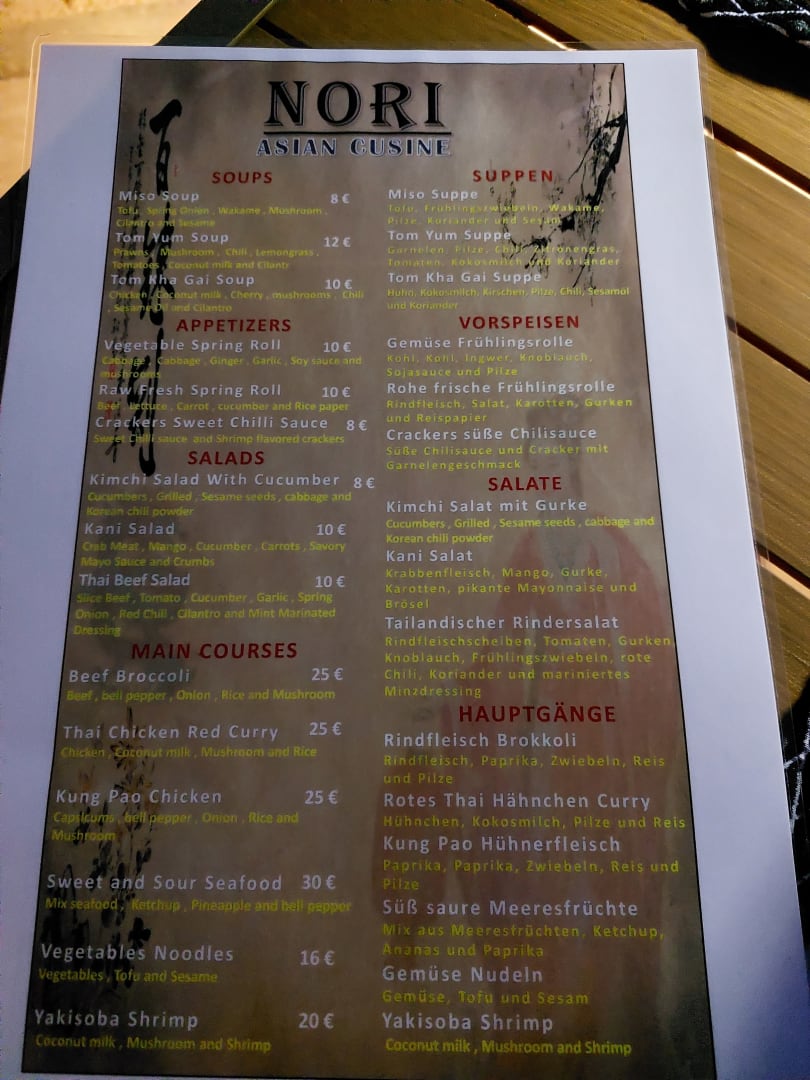 NORI
ASIAN CUSINE
SOUPS
Miso Soup 8 €
Tofu, Spring Onion , Wakame , Mushroom ,
Cilantro and Sesame
Tom Yum Soup 12 €
Prawns , Mushroom , Chili , Lemongrass ,
Tomatoes , Coconut milk and Cilantr
Tom Kha Gai Soup 10 €
Chicken , Coconut milk , Cherry , mushrooms , Chili
, Sesame Oil and Cilantro
APPETIZERS
Vegetable Spring Roll 10 €
Cabbage , Cabbage , Ginger , Garlic , Soy sauce and
mushrooms
Raw Fresh Spring Roll 10 €
Beef , Lettuce , Carrot , cucumber and Rice paper
Crackers Sweet Chilli Sauce 8 €
Sweet Chilli sauce and Shrimp flavored crackers
SALADS
Kimchi Salad With Cucumber 8 €
Cucumbers , Grilled , Sesame seeds , cabbage and
Korean chili powder
Kani Salad 10 €
Crab Meat , Mango , Cucumber , Carrots , Savory
Mayo Sauce and Crumbs
Thai Beef Salad 10 €
Slice Beef , Tomato , Cucumber , Garlic , Spring
Onion , Red Chili , Cilantro and Mint Marinated
Dressing
MAIN COURSES
Beef Broccoli 25 €
Beef , bell pepper , Onion , Rice and Mushroom
Thai Chicken Red Curry 25 €
Chicken , Coconut milk , Mushroom and Rice
Kung Pao Chicken 25 €
Capsicums , bell pepper , Onion , Rice and
Mushroom
Sweet and Sour Seafood 30 €
Mix seafood , Ketchup , Pineapple and bell pepper
Vegetables Noodles 16 €
Vegetables , Tofu and Sesame
Yakisoba Shrimp 20 €
Coconut milk , Mushroom and Shrimp
SUPPEN
Miso Suppe
Tofu, Frühlingszwiebeln, Wakame,
Pilze, Koriander und Sesam
Tom Yum Suppe
Garnelen, Pilze, Chili, Zitronengras,
Tomaten, Kokosmilch und Koriander
Tom Kha Gai Suppe
Huhn, Kokosmilch, Kirschen, Pilze, Chili, Sesamöl
und Koriander
VORSPEISEN
Gemüse Frühlingsrolle
Kohl, Kohl, Ingwer, Knoblauch,
Sojasauce und Pilze
Rohe frische Frühlingsrolle
Rindfleisch, Salat, Karotten, Gurken
und Reispapier
Crackers süße Chilisauce
Süße Chilisauce und Cracker mit
Garnelengeschmack
SALATE
Kimchi Salat mit Gurke
Cucumbers , Grilled , Sesame seeds , cabbage and
Korean chili powder
Kani Salat
Krabbenfleisch, Mango, Gurke,
Karotten, pikante Mayonnaise und
Brösel
Tailandischer Rindersalat
Rindfleischscheiben, Tomaten, Gurken,
Knoblauch, Frühlingszwiebeln, rote
Chili, Koriander und mariniertes
Minzdressing
HAUPTGÄNGE
Rindfleisch Brokkoli
Rindfleisch, Paprika, Zwiebeln, Reis
und Pilze
Rotes Thai Hähnchen Curry
Hühnchen, Kokosmilch, Pilze und Reis
Kung Pao Hühnerfleisch
Paprika, Paprika, Zwiebeln, Reis und
Pilze
Süß saure Meeresfrüchte
Mix aus Meeresfrüchten, Ketchup,
Ananas und Paprika
Gemüse Nudeln
Gemüse, Tofu und Sesam
Yakisoba Shrimp
Coconut milk , Mushroom and Shrimp